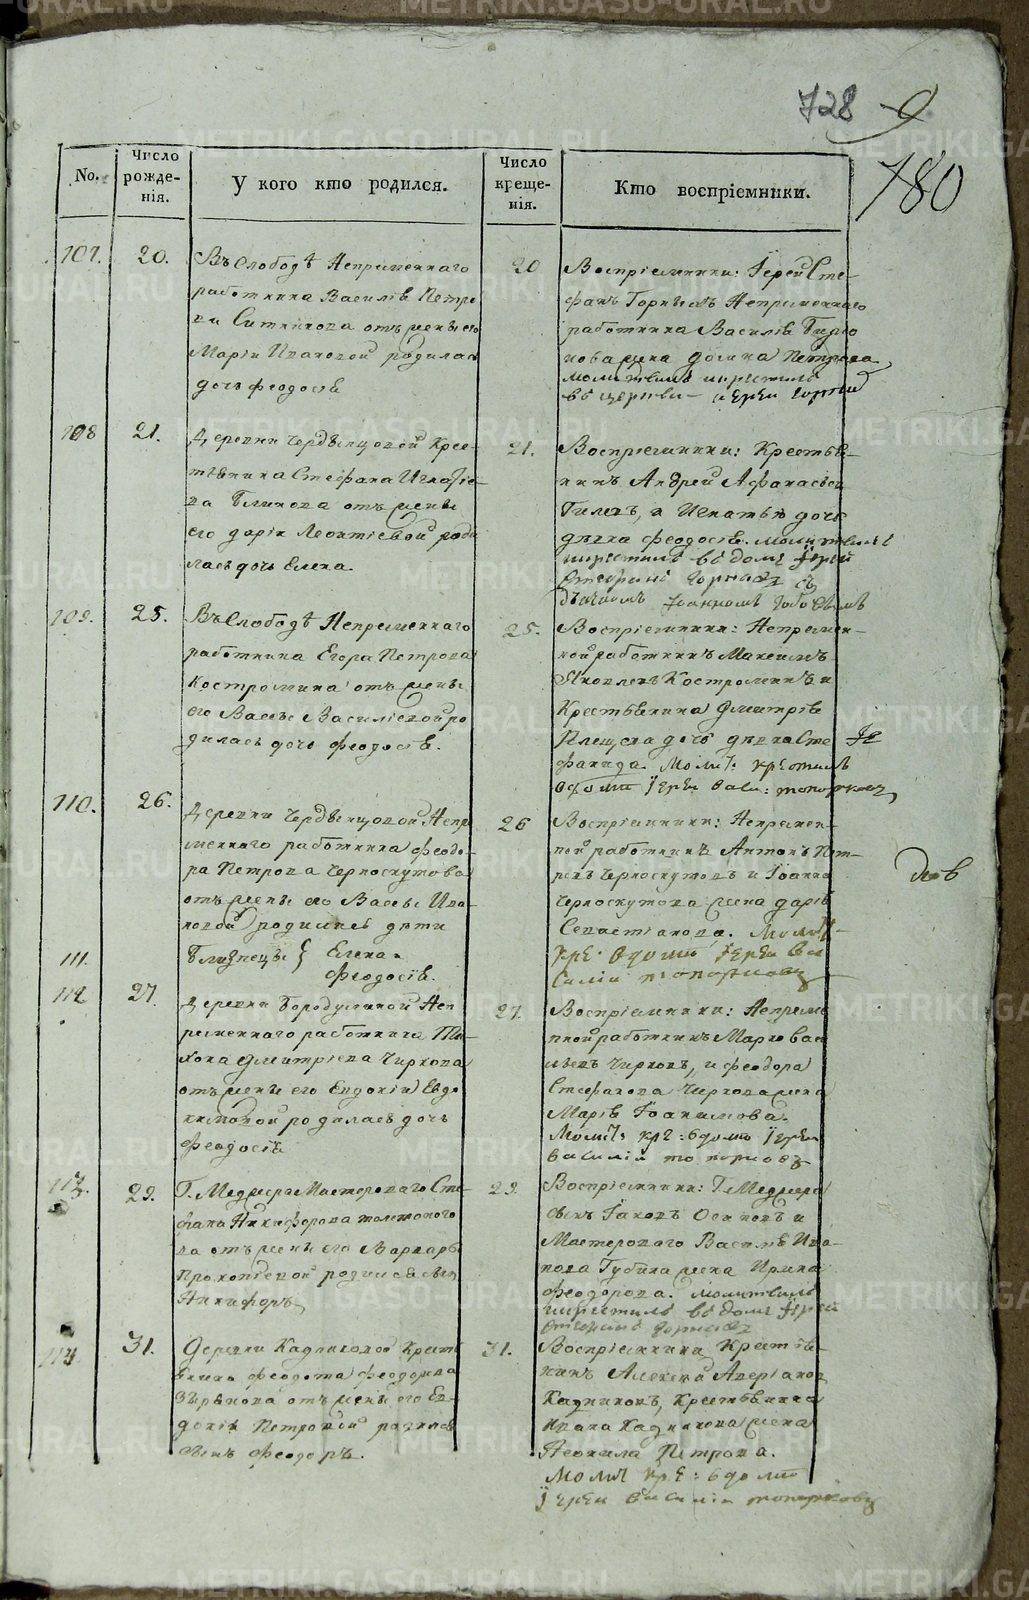 728
780
No.
Число рожде-нія.
У кого кто родился.
Число креще-нія.
Кто воспріемники.
107.
20.
Въ Слободѣ Непременнаго
работника Василія Петро
ва Ситникова отъ жены его
Маріи Ивановой родилась
дочь Феодосія
20
Воспріемники: Іерей Сте-
фанъ Горныхъ Непременнаго
работника Василія
жена Петрова
молитвилъ и крестилъ
въ церкви Іерей Горных
108
21.
Деревни Чердынцовой Крес-
тьянина Стефана Игнатіе-
ва Блинова отъ жены
его Дарьи Леонтіевой роди
лась дочь Елена.
21.
Воспріемники: Крестья-
нинъ Андрей Афанасьев
дочь
девка Феодосія. молитвилъ
и крестилъ въ доме Іерей
109.
25.
Въ Слободѣ Непременнаго
работника Егора Петрова
Костромина отъ жены
его Вассы Василіевой ро
дилась дочь Феодосія.
25.
Воспріемники: Непремен-
ной работникъ Максимъ
Яковлевъ Костроминъ и
Крестьянина Дмитрія
дочь девка Сте
фанида. Молит: крестилъ
в доме Іерей Васи: Топорковъ
110.
26.
Деревни Чердынцовой Непре
меннаго работника Феодо-
ра Петрова Черноскутова
отъ жены его Вассы Ива
новой родились дети
111.
Близнецы { Елена
Феодосія.
26
Воспріемники: Непремен-
ной работникъ Антонъ Пет-
ровъ Черноскутовъ и Іоанна
Черноскутова жена Дарія
Севастіанова. Молит:
кре: в доме Іерей Ва
силій Топорковъ
112
27.
Деревни Бородулиной Неп
ременнаго работника Ти-
хона Дмитріева Чиркова
отъ жены его Евдокіи Евдо
кимовой родилась дочь
Феодосія
27.
Воспріемники: Непреме
нной работникъ Марко Васи
льевъ Чирковъ, и Феодора
Стефанова Чиркова жена
Марія Іоакимова.
Молит: кре: в доме Іерей
Василій Топорковъ
113.
29.
Г. Медмера Мастероваго Сте
фана Никифорова
ва отъ жены его Варвары
Прокопіевой родился сынъ
Никифоръ
29.
Воспріемники: Г. Медмера
сынъ Іаковъ Осиповъ и
Мастероваго Василія Ива
нова Губина жена Ирина
Феодорова. молитвилъ
и крестилъ въ доме Іерей
114
31.
Деревни Кадниковой Кресть
янина Феодота Феодорова
Зырянова отъ жены его Ев-
докіи Петровой родился
сынъ Феодоръ.
31.
Воспріемники Крестья-
нинъ Алексей Аверіанов
Кадниковъ, Крестьянина
Ивана Кадникова жена
Неонила Петрова.
Молит кре: в доме
Іерей Василій Топорковъ
METRIKI.GASO-URAL.RU